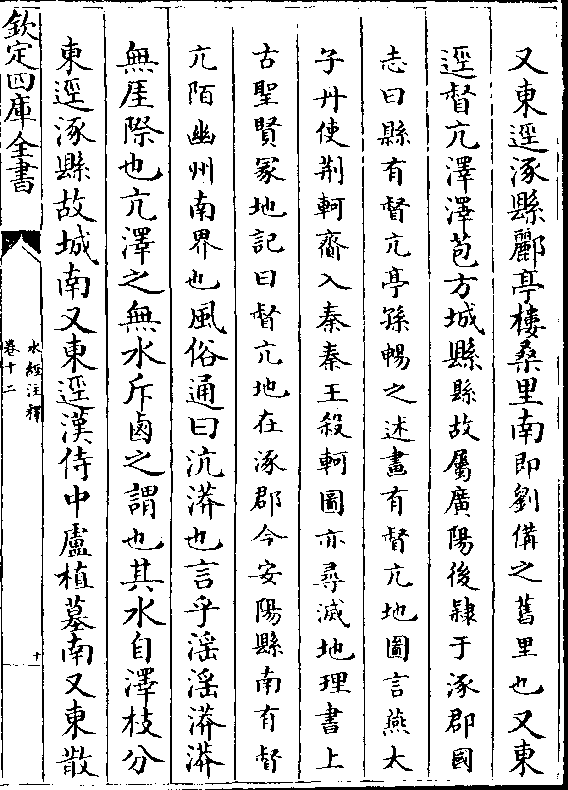 又東逕涿縣酈亭樓桑里南即劉備之舊里也又東
逕督亢澤澤苞方城縣縣故屬廣陽後隸于涿郡國
志曰縣有督亢亭孫暢之述畫有督亢地圖言燕太
子丹使荆軻齎入秦秦王殺軻圖亦尋滅地理書上
古聖賢冢地記曰督亢地在涿郡今安陽縣南有督
亢陌幽州南界也風俗通曰沆漭也言乎淫淫漭漭
無厓際也亢澤之無水斥鹵之謂也其水自澤枝分
東逕涿縣故城南又東逕漢侍中盧植墓南又東散
欽定四庫全書
水經注釋
卷十二
十